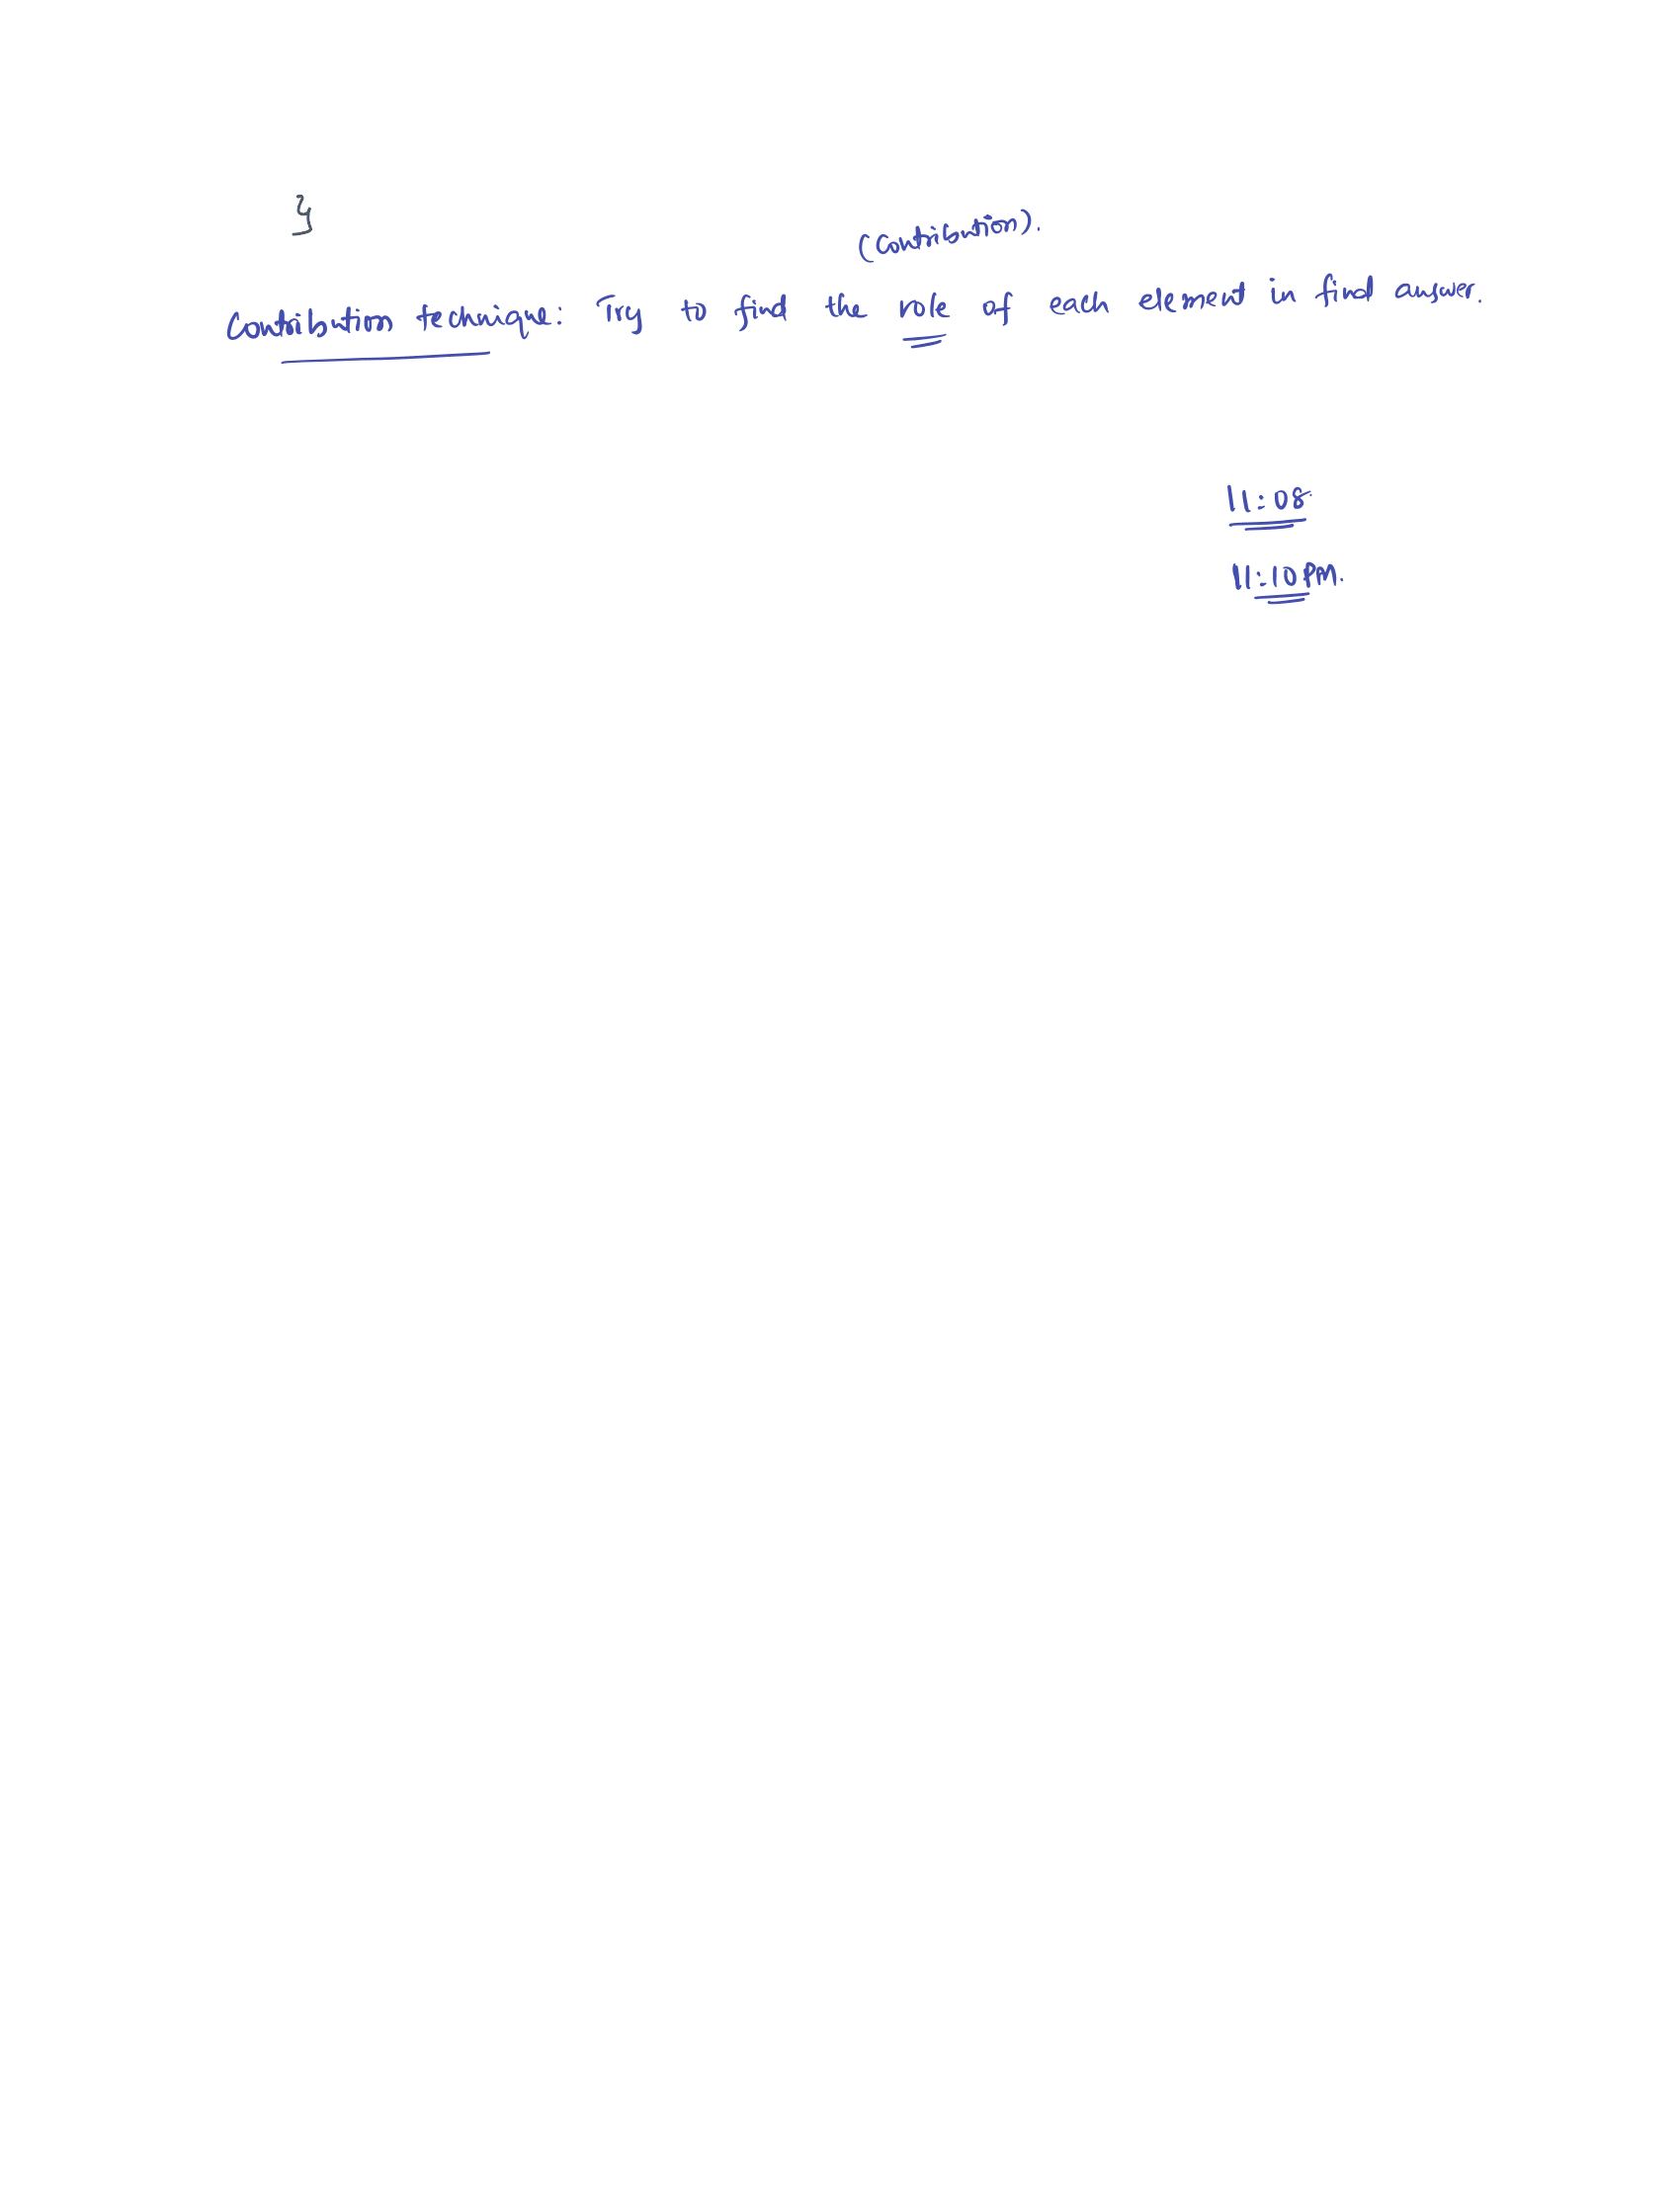 }
(Contribution).
Contribution technique: Try to find the role of each element in find answer.
11:08
11:10 PM.